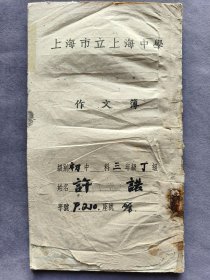 上海市立上海中學
作文簿
級別 初中 科三年級丁組
姓名 許諾
學號 P.210. 座號